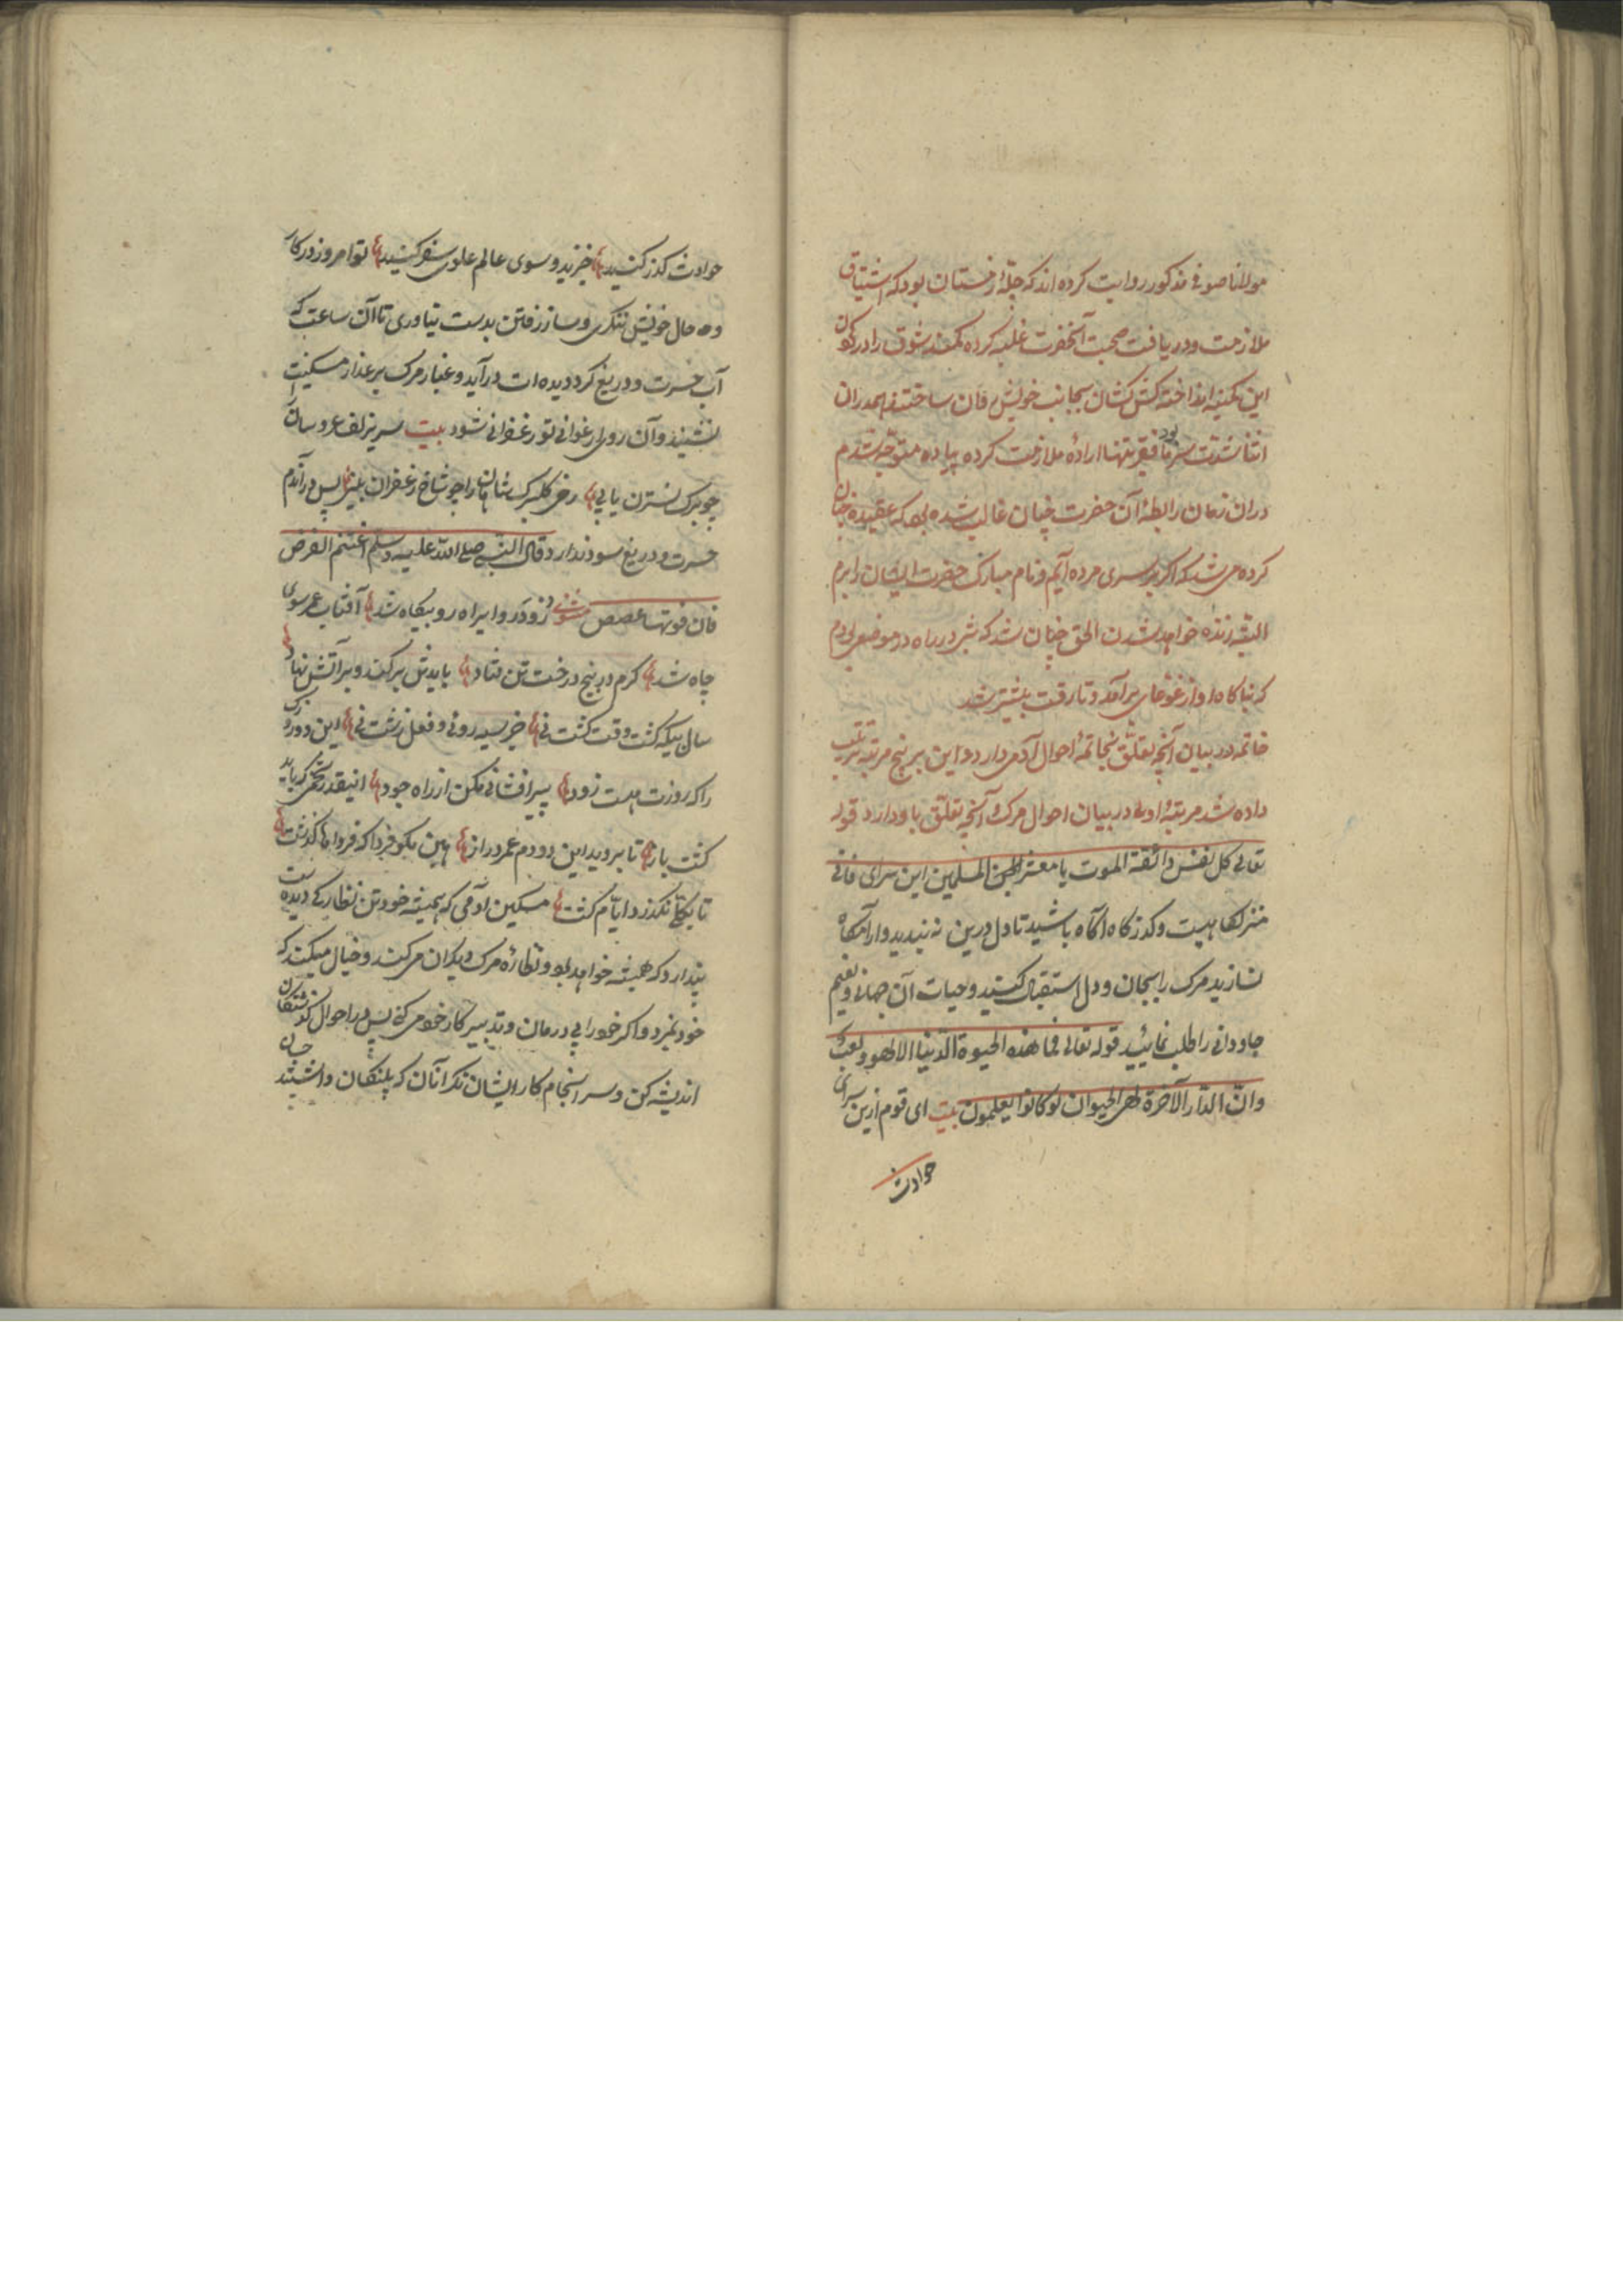 مولانا صوفی مذکور روایت کرده اند که چلهٔ زمستان بود که اشتیاق
ملازمت و دریافت صحبت آنحضرت غلبه کرده کمند شوق را در کردن
این کمینه انداخته کش کشان بجانب خویش ساختند همدران
اثنا شدت سرما بود فقیر تنها ارادهٔ ملازمت کرده پیاده متوجه شدم
دران زمان رابطهٔ آن حضرت چنان غالب شده بود که عقیده چنان
کرده می شد که اکر بر سری مرده آیم و نام مبارک حضرت ایشان را برم
البته زنده خواهد شدن الحق چنان شد که شب در راه در موضعی بودم
که ناکاه اواز غوغای برآمد و تا رقت بیشتر شد
خاتمه در بیان آنچه تعلق بخاتمهٔ احوال آدمی دارد و این بر پنج مرتبه ترتیب
داده شد مرتبهٔ اولی در بیان احوال مرک و آنچه تعلق باو دارد قوله
تعالی کل نفس ذائقة الموت یا معشر المسلمین این سرای فانی
منزلکاهیست و کذرکاه اکاه باشید تا دل درین نه بندید و آرامکاه
نسازید مرک را بجان و دل استقبال کنید و حیات آن جهان و نعیم
جاودانی را طلب نمائید قوله تعالی فما هذه الحیوة الدنیا الا لهو و لعب
وان الدار الآخرة لهی الحیوان لو کانوا یعلمون بیت ای قوم ازین سرای
حوادث
حوادث کذر کنید خیزید و سوی عالم علوی سفر کنید تو امروز در کار
و حال خویش ننکری و ساز رفتن بدست نیاوری تا آن ساعت که
آب حسرت و دریغ کرد دیده ات درآید و غبار مرک بر عذار مسکینت
نشیند و آن روی ارغوانی تو زعفرانی شود بیت سر زلف عروسان
چو برک نسترن یابی رخ کلبرک شاهان را چو شاخ زعفران بینی پس در آندم
حسرت و دریغ سود ندارد قال النبی صلی الله علیه وسلم اغتنم الفرض
فان فوتها غصص مثنوی زودتر وا براه رو بیکاه شد آفتاب عمر سوی
چاه شد کرم در بیخ درخت تن فتاد بایدش برکند و بر آتش نهاد
سال بیکه کشت وقت کشت نی جز سیه رویی و فعل زشت نی این دو روزی
را که روزت هست زود پیر افشانی بکن از راه جود اینقدر تخمی که باید
کشت باز تا بروید این دو دم عمر دراز هین مکو فردا که فرداها کذشت
تا بکلی نکذرد ایام کشت مسکین آدمی که همیشه خود تن نظارکی دیده است
پندارد که همیشه خواهد بود و نظارهٔ مرک دیکران می کند و خیال میکند که
خود نمیرد و اکر خود را بی درمان و تدبیر کار خود می کنی پس در احوال کذشتکان
اندیشه کن و سر انجام کار ایشان نکر آنان که پلنکان داشتند